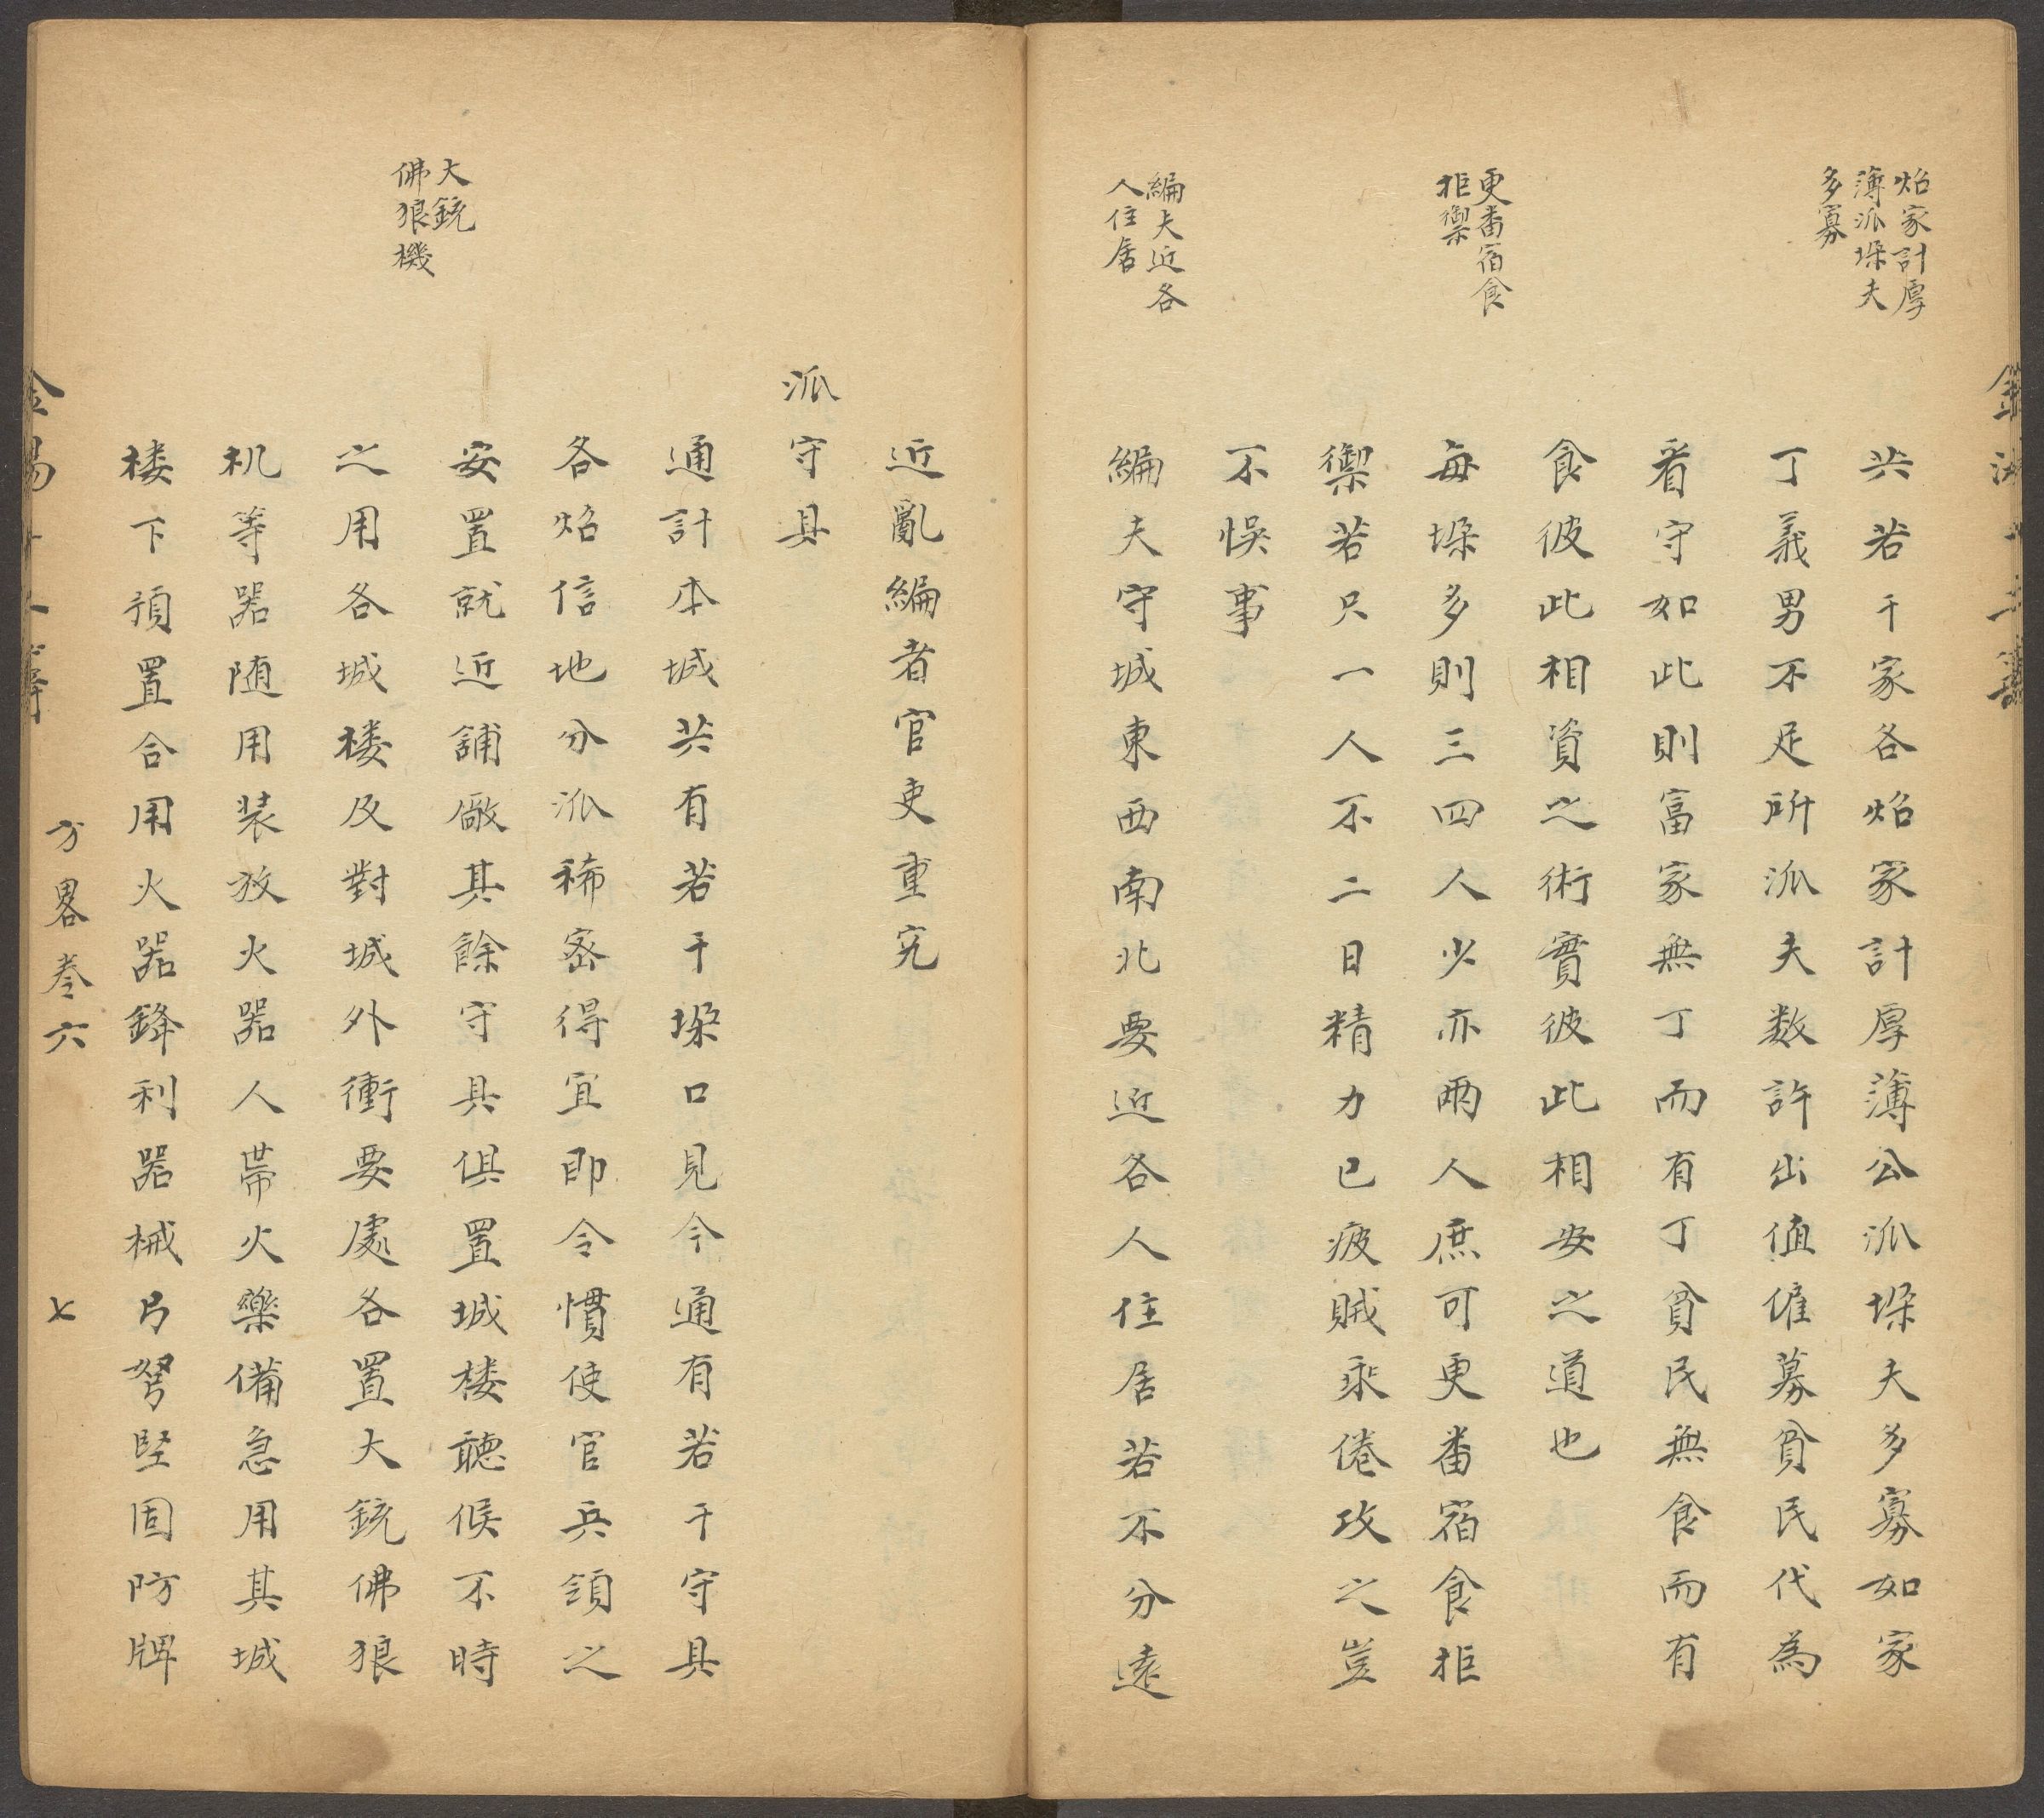 炤家計厚
薄派垛夫
多寡
共若干家各炤家計厚薄公派垛夫多寡如家
丁義男不足所派夫数許出值僱募貧民代為
看守如此則富家無丁而有丁貧民無食而有
食彼此相資之術實彼此相安之道也
更番宿食
拒禦
每垛多則三四人少亦兩人庶可更番宿食拒
禦若只一人不二日精力已疲賊乘倦攻之豈
不悞事
編夫近各
人住居
編夫守城東西南北要近各人住居若不分遠
近亂編者官吏重究
派守具
通計本城共有若干垛口見今通有若干守具
各炤信地分派稀密得宜即令慣使官兵領之
安置就近鋪廠其餘守具俱置城楼聽候不時
大銃
佛狼機
之用各城楼及對城外衝要處各置大銃佛狼
机等噐随用装放火噐人帶火藥備急用其城
楼下預置合用火噐鋒利噐械弓弩堅固防牌
方畧叁六
七